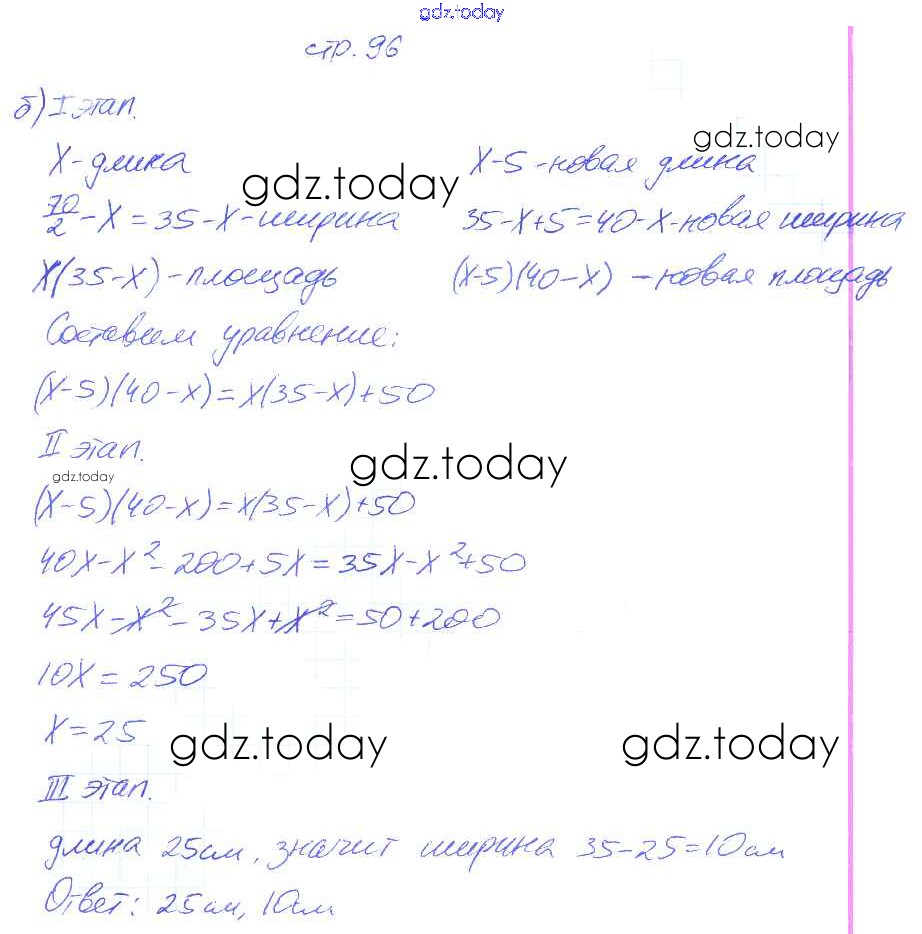 gdz.today
стр. 96
б) I этап.
gdz.today
X - длина
X-5 - новая длина
gdz.today
70/2 - X = 35 - X - ширина
35-X+5=40-X-новая ширина
X(35-X) - площадь
(X-5)(40-X) - новая площадь
Составим уравнение:
(X-5)(40-X)=X(35-X)+50
II этап.
gdz.today
gdz.today
(X-5)(40-X)=X(35-X)+50
40X-X²-200+5X=35X-X²+50
45X-X²-35X+X²=50+200
10X=250
X=25
gdz.today
gdz.today
III этап.
длина 25см, значит ширина 35-25=10см
Ответ: 25см, 10см